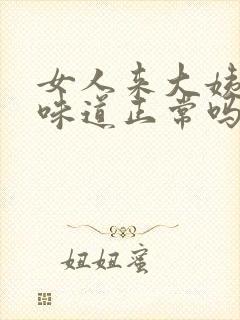 女人来大姨
味道正常吗
妞妞蜜